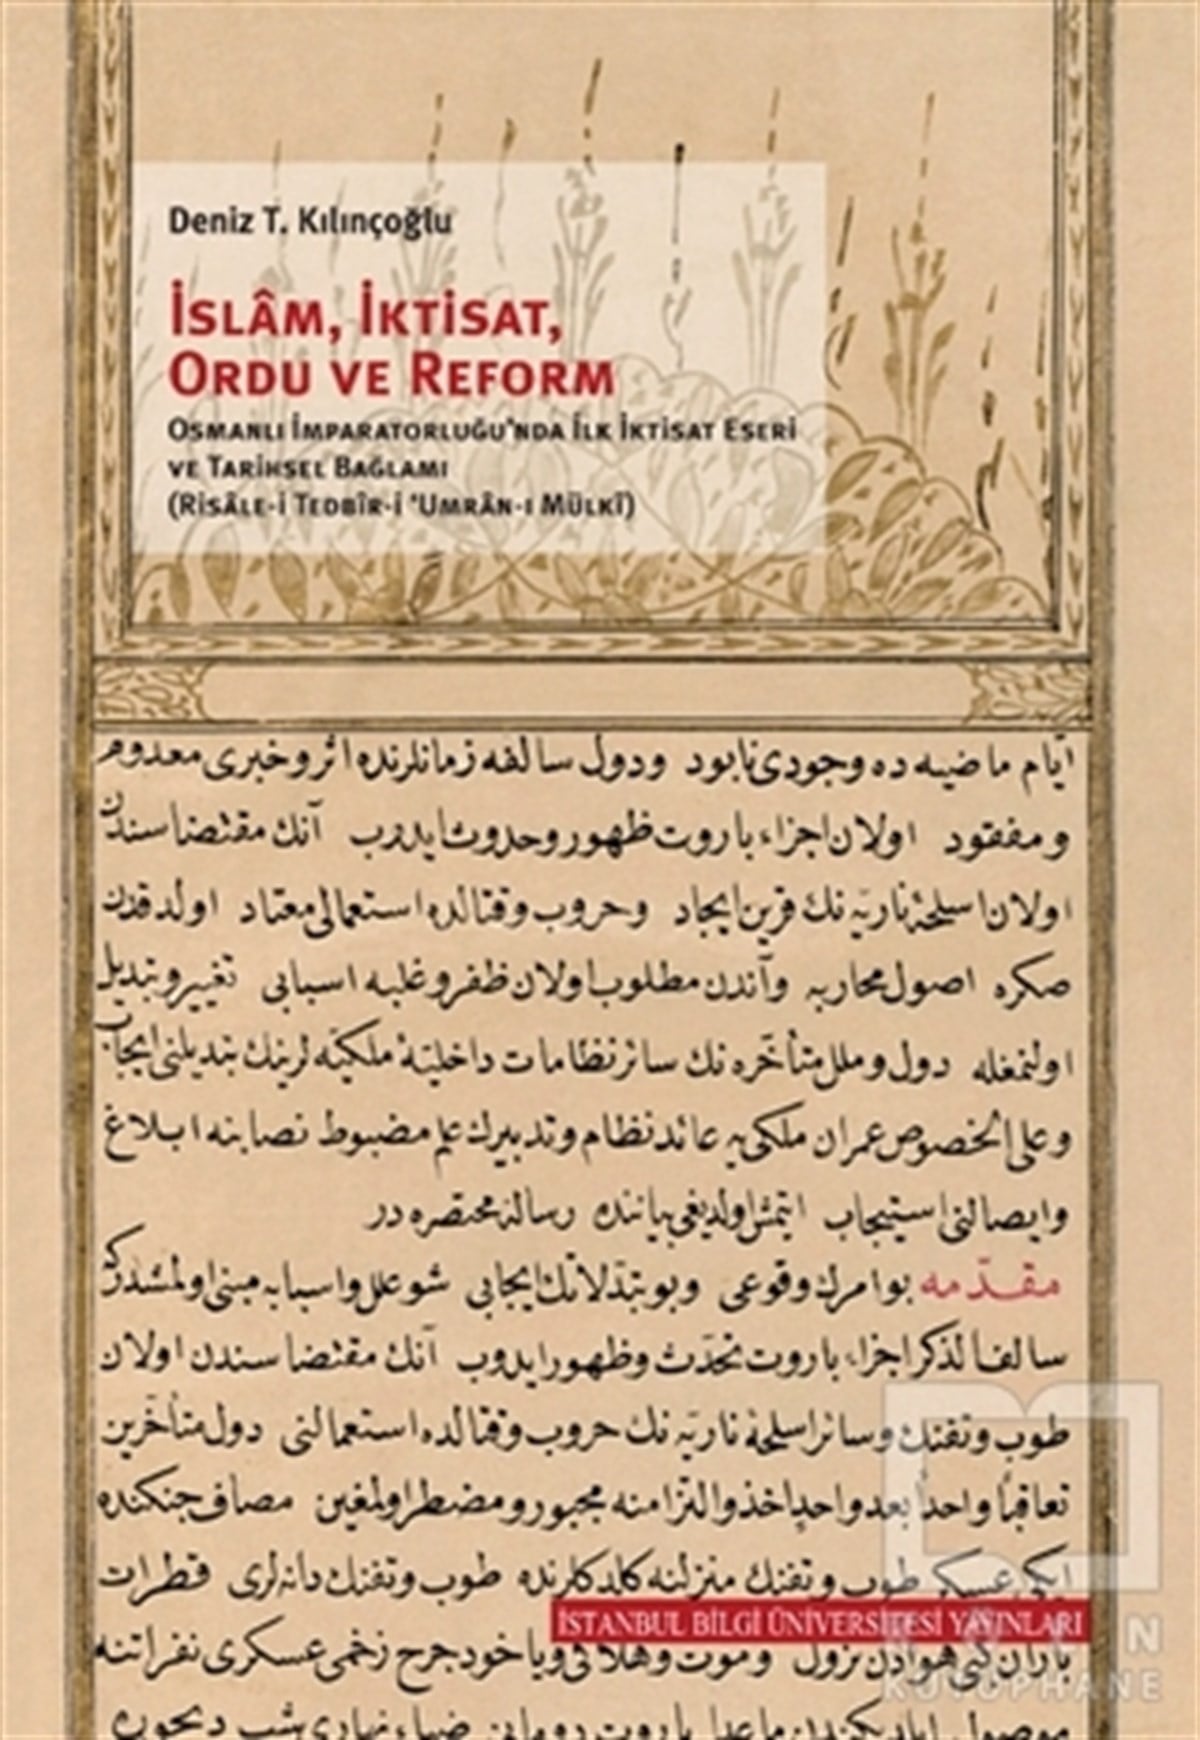 Deniz T. Kılınçoğlu
İSLÂM, İKTİSAT,
ORDU VE REFORM
OSMANLI İMPARATORLUĞU'NDA İLK İKTİSAT ESERİ
VE TARİHSEL BAĞLAMI
(RİSÂLE-İ TEDBÎR-İ 'UMRÂN-I MÜLKÎ)
ايّام ماضيه ده وجودی نابود ودول سالفه زمانلرنده اثر وخبری معدوم
ومفقود اولان اجزاء باروت ظهور وحدوث ايدوب آنك مقتضاسندن
اولان اسلحهٔ ناريّه نك قرين ايجاد وحروب وقتالده استعمالی معتاد اولدقدن
صكره اصول محاربه وآندن مطلوب اولان ظفر وغلبه اسبابی تغيير وتبديل
اولنمغله دول وملل متأخّره نك سائر نظامات داخليّهٔ ملكيّه لرينك تبديلنی ايجاب
وعلی الخصوص عمران ملكی يه عائد نظام وتدبيرك علم مضبوط نصابنه ابلاغ
وايصالنی استيجاب ايتمش اولديغی بياننده رسالهٔ مختصره در
مقدّمه بو امرك وقوعی وبو تبدّلاتك ايجابی شو علل واسبابه مبنی اولمشدركه
سالف الذكر اجزاء باروت تحدّث وظهور ايدوب آنك مقتضاسندن اولان
طوب وتفنك وسائر اسلحهٔ ناريّه نك حروب وقتالده استعمالنی دول متأخرين
تعاقباً واحداً بعد واحدٍ اخذ والتزامنه مجبور ومضطر اولمغين مصاف جنكنده
ايكی عسكر طوب وتفنك منزلنه كلدكلرنده طوب وتفنك دانه لری قطرات
İSTANBUL BİLGİ ÜNİVERSİTESİ YAYINLARI
باران كبی هوادن نزول وموت وهلاكی وياخود جرح زخمی عسكری نفراتنه
KÜTÜPHANE